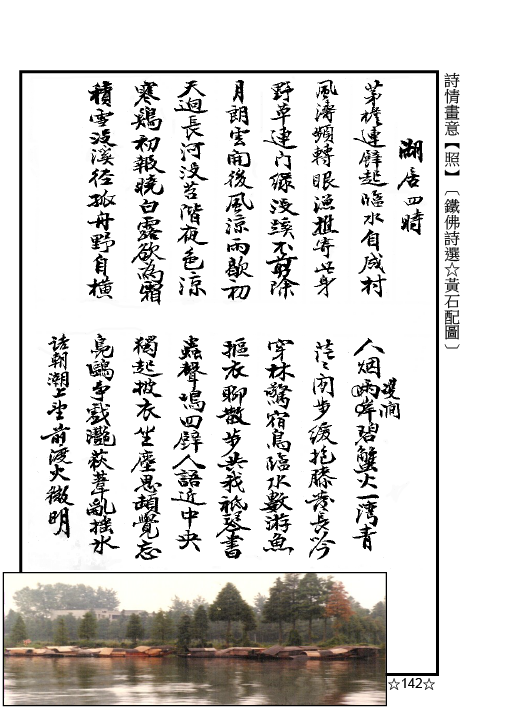 詩情畫意【照】〔鐵佛詩選☆黃石配圖〕
湖居四時
茅檐連壁起臨水自成村
人烟兩岸碧蟹火一灣青
澗
風濤頻轉眼漁樵寄此身
茫茫閑步緩抱膝發長吟
野草連门綠沒蹊不剪除
穿林驚宿鳥臨水數游魚
月朗雲開後風涼雨歇初
摳衣聊散步共我祇琴書
天迥長河沒苔階夜色涼
蟲聲鳴四壁人語近中央
寒鷄初報曉白露欲為霜
獨起披衣坐塵思頓覺忘
積雪沒溪徑孤舟野自橫
鳧鷗爭戲灩荻葦亂搖水
詰朝潮上望前渡火微明
☆142☆